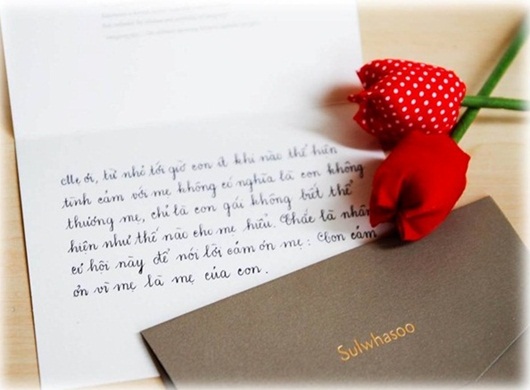 Mẹ ơi, từ nhỏ tới giờ con ít khi nào thể hiện
tình cảm với mẹ không có nghĩa là con không
thương mẹ, chỉ là con gái không biết thể
hiện như thế nào cho mẹ hiểu. Chắc là nhân
cơ hội này để nói lời cám ơn mẹ: Con cám
ơn vì mẹ là mẹ của con.
Sulwhasoo